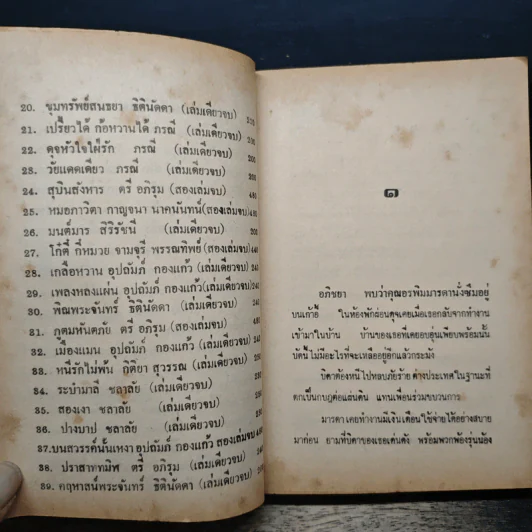 20. ขุมทรัพย์สนธยา ธิตินัดดา (เล่มเดียวจบ)
21. เปรี้ยวได้ ก้อหวานได้ ภรณี (เล่มเดียวจบ)
22. ดุจหัวใจใฝ่รัก ภรณี (เล่มเดียวจบ) 200
23. วัยแดดเดียว ภรณี (เล่มเดียวจบ) 200
24. สุบินสังหาร ตรี อภิรุม (สองเล่มจบ) 480
25. หมอภาวิตา กาญจนา นาคนันทน์ (สองเล่มจบ) 480
26. มนต์มาร สิริรัชนี (เล่มเดียวจบ) 200
27. โก๋ตี๋ กี๋หมวย จามจุรี พรรณทิพย์ (สองเล่มจบ) 440
28. เกลือหวาน อุปถัมภ์ กองแก้ว (เล่มเดียวจบ) 240
29. เพลงหลงแผ่น อุปถัมภ์ กองแก้ว (เล่มเดียวจบ) 240
30. พิณพระจันทร์ ธิตินัดดา (เล่มเดียวจบ) 240
31. ภูตมหันตภัย ตรี อภิรุม (สองเล่มจบ)
32. เมืองแมน อุปถัมภ์ กองแก้ว (เล่มเดียวจบ) 240
33. หนีรักไม่พ้น กิติยา สุวรรณ (เล่มเดียวจบ)
34. ระบำมาลี ชลาลัย (เล่มเดียวจบ) 230
35. สองเงา ชลาลัย (เล่มเดียวจบ)
36. ปางบาป ชลาลัย (เล่มเดียวจบ)
37. บนสวรรค์นั้นเหงา อุปถัมภ์ กองแก้ว สองเล่มจบ)
38. ปราสาททมิฬ ตรี อภิรุม (เล่มเดียวจบ)
39. คฤหาสน์พระจันทร์ ธิตินัดดา (เล่มเดียวจบ)
๑
อภิชยา พบว่าคุณอรพิมมารดานั่งซึมอยู่
บนเก้าอี้ ในห้องพักผ่อนชุดเคยเมื่อเธอกลับจากทำงาน
เข้ามาในบ้าน บ้านของเธอที่เคยอบอุ่นเพียบพร้อมนั้น
บัดนี้ไม่มีอะไรที่จะเหลืออยู่อีกแล้วกระมัง
บิดาต้องหนีไปหลบภัยร้าย ต่างประเทศในฐานะที่
ตกเป็นกบฏต่อแผ่นดิน แทนเพื่อนร่วมขบวนการ
มารดา เคยทำงานมีเงินเดือนใช้จ่ายได้อย่างสบาย
มาก่อน ยามที่บิดาของเธอเด่นดัง พร้อมพวกพ้องรุ่นน้อง